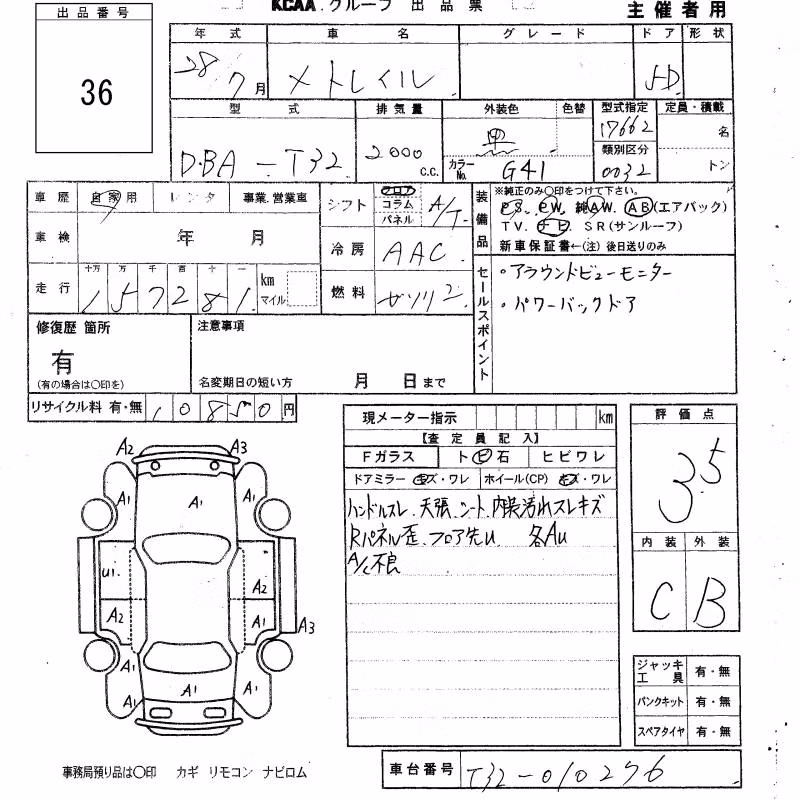 KCAA グループ 出品票
主催者用
出品番号
36
年式 車名 グレード ドア 形状
28 7月 メトレイル 5D
型式 排気量 外装色 色替 型式指定 定員・積載
DBA-T32 2000 c.c. 黒 17662 名
カラーNo. G41 類別区分 0032 トン
車歴 自家用 レンタ 事業.営業車
車検 年 月
走行 十万 万 千 百 十 一 km マイル
157281
シフト フロア コラム パネル A/T
冷房 AAC
燃料 ガソリン
装備品
※純正のみ○印をつけて下さい。
PS. PW. 純AW. AB(エアバック)
TV. ナビ. SR(サンルーフ)
新車保証書←(注)後日送りのみ
セールスポイント
・アラウンドビューモニター
・パワーバックドア
修復歴 箇所
有
(有の場合は○印を)
注意事項
名変期日の短い方 月 日まで
リサイクル料 有・無 10850円
現メーター指示 km
【査定員記入】
Fガラス トビ石 ヒビワレ
ドアミラー キズ・ワレ ホイール(CP) キズ・ワレ
ハンドルスレ.天張.シート.内装汚れスレキズ
Rパネル歪.フロア先u 各Au
A/C不良
評価点
3.5
内装 外装
C B
ジャッキ工具 有・無
パンクキット 有・無
スペアタイヤ 有・無
A2 A3
A1 A1 A1
U1. A2
A2 A1 A3
A1 A1 A1
A1
事務局預り品は○印 カギ リモコン ナビロム
車台番号 T32-010276